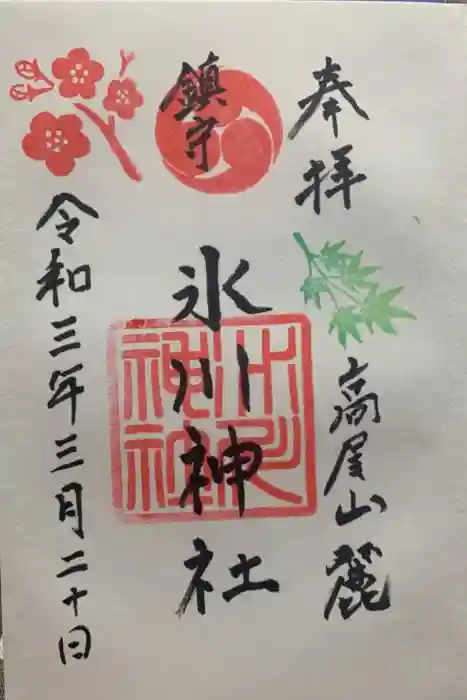 奉拝
高尾山麓
鎮守
氷川神社
氷川神社
令和三年三月二十日